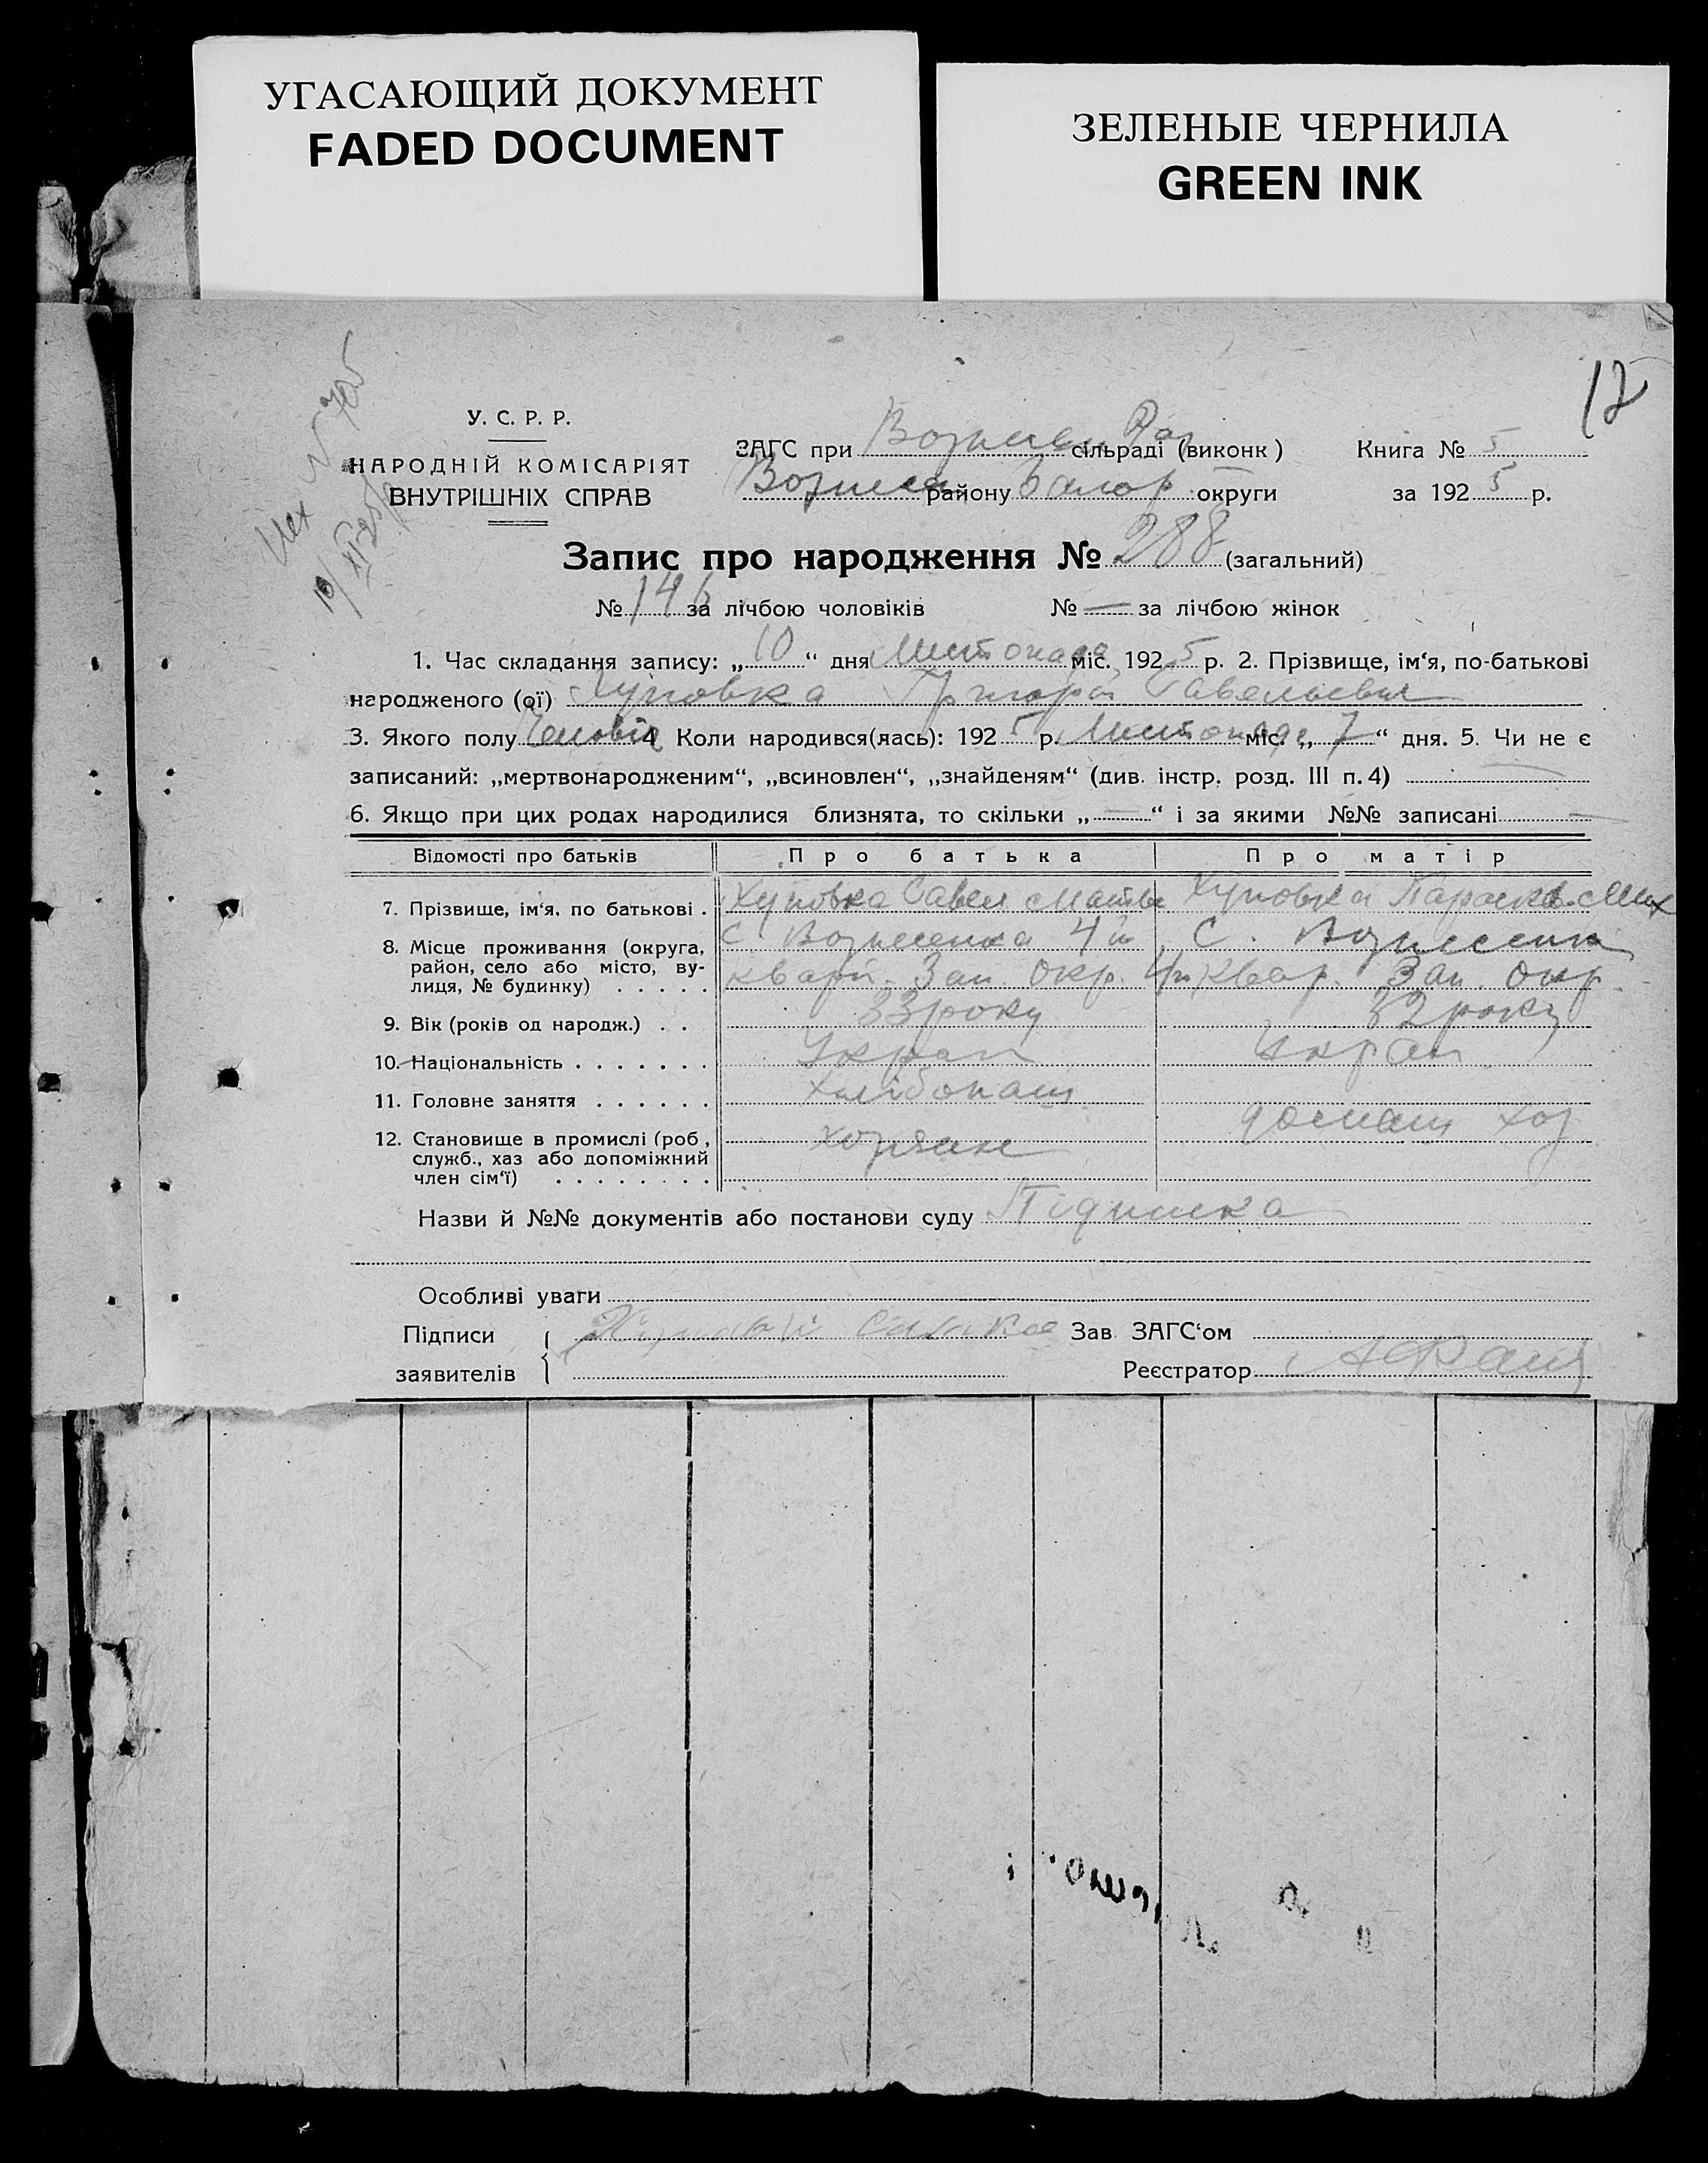 УГАСАЮЩИЙ ДОКУМЕНТ
FADED DOCUMENT
ЗЕЛЕНЫЕ ЧЕРНИЛА
GREEN INK
12
У. С. Р. Р.
НАРОДНІЙ КОМІСАРІЯТ
ВНУТРІШНІХ СПРАВ
ЗАГС при Вознесен Рай сільраді (виконк) Книга № 5
Вознесен району Запор округи за 1925 р.
Запис про народження № 288 (загальний)
№ 146 за лічбою чоловіків № — за лічбою жінок
1. Час складання запису: „10“ дня Листопада міс. 1925 р. 2. Прізвище, ім‘я, по-батькові
народженого (ої) Хуповка Григорій Савельевич
3. Якого полу Чоловіч 4. Коли народився(лась): 1925 р. Листопада міс. „7“ дня. 5. Чи не є
записаний: „мертвонародженим“, „всиновлен“, „знайденям“ (див. інстр. розд. III п. 4)
6. Якщо при цих родах народилися близнята, то скільки „—“ і за якими №№ записані —
Відомості про батьків Про батька Про матір
7. Прізвище, ім‘я, по батькові . Хуповка Савел Матве Хуповка Параска Мих
8. Місце проживання (округа, район, село або місто, вулиця, № будинку) . . . . . С Вознесенка 4й С. Вознесенка
кварт. Зап. Окр. 4й Квар. Зап. Окр
9. Вік (років од народж.) . . 33 року 32 року
10. Національність . . . . . . . Украп Украп
11. Головне заняття . . . . . . Хлібопаш
12. Становище в промислі (роб, служб., хаз або допоміжний член сім‘ї) . . . . . . . . хозяин домаш хоз
Назви й №№ документів або постанови суду Підписка
Особливі уваги
Підписи
заявителів
Зав ЗАГС‘ом
Реєстратор